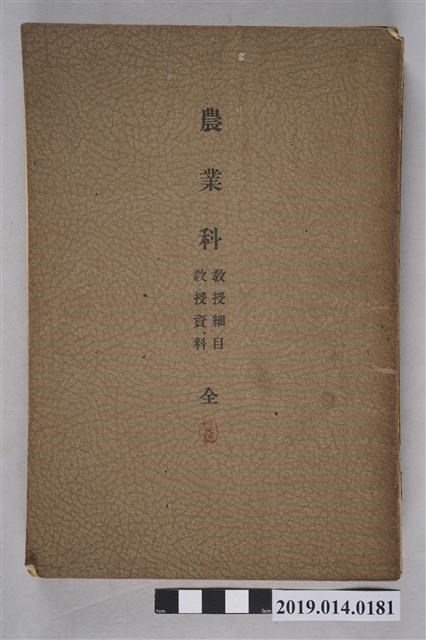 農業科
教授細目
教授資料
全
1cm
5cm
2019.014.0181